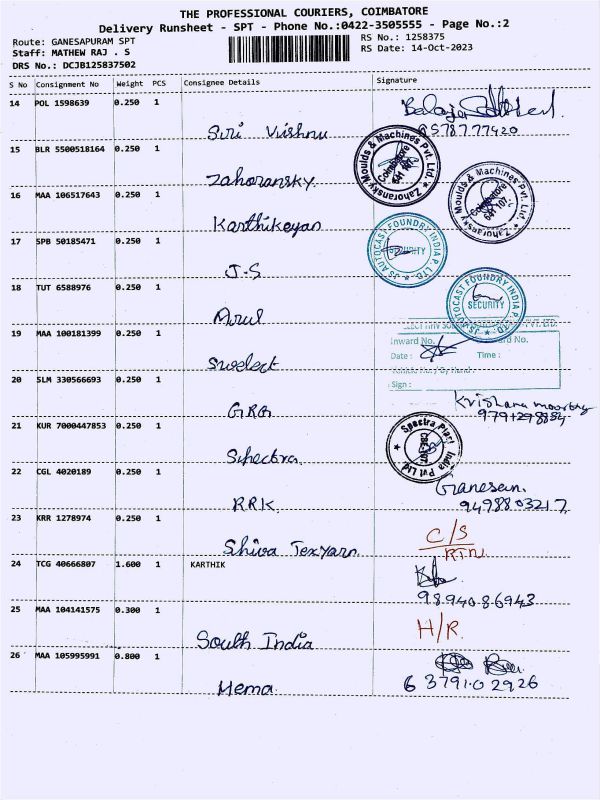 THE PROFESSIONAL COURIERS, COIMBATORE
Delivery Runsheet - SPT - Phone No.:0422-3505555 - Page No.:2
Route: GANESAPURAM SPT
Staff: MATHEW RAJ . S
DRS No.: DCJB125837502
RS No.: 1258375
RS Date: 14-Oct-2023
S No Consignment No Weight PCS Consignee Details Signature
14 POL 1598639 0.250 1
Siri Vrishnu
8578777420
15 BLR 5500518164 0.250 1
Zahoransky
Zahoransky Moulds & Machines Pvt. Ltd. Coimbatore 641 107
16 MAA 106517643 0.250 1
Karthikeyan
Zahoransky Moulds & Machines Pvt. Ltd. Coimbatore 641 107
17 SPB 50185471 0.250 1
J.S
JS AUTOCAST FOUNDRY INDIA P. LTD. SECURITY
18 TUT 6588976 0.250 1
Arul
JS AUTOCAST FOUNDRY INDIA P. LTD. SECURITY
19 MAA 100181399 0.250 1
Swelect
PVT. LTD.
Inward No.
Date : Time :
Sign :
20 SLM 330566693 0.250 1
GRG
Krishana moorthy
9791298884
21 KUR 7000447853 0.250 1
Spectra
Spectra Plast India Pvt Ltd
22 CGL 4020189 0.250 1
RRK
Ganesan.
9498803217
23 KRR 1278974 0.250 1
Shiva Texyarn
C/S
RTN
24 TCG 40666807 1.600 1 KARTHIK
9894086943
25 MAA 104141575 0.300 1
South India
H/R
26 MAA 105995991 0.800 1
Hema
6379102926